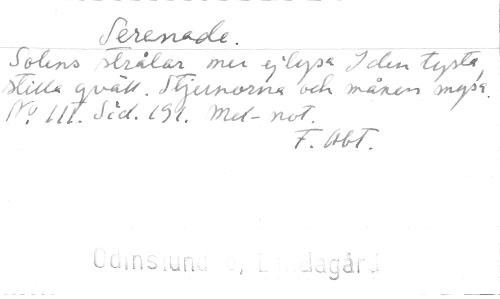 Serenade.
Solens strålar mer ej lysa I den tysta,
stilla qväll. Stjernorna och månen mysa.
No 111. Sid. 191. Mel- not.
F. Abt.
Odinslund